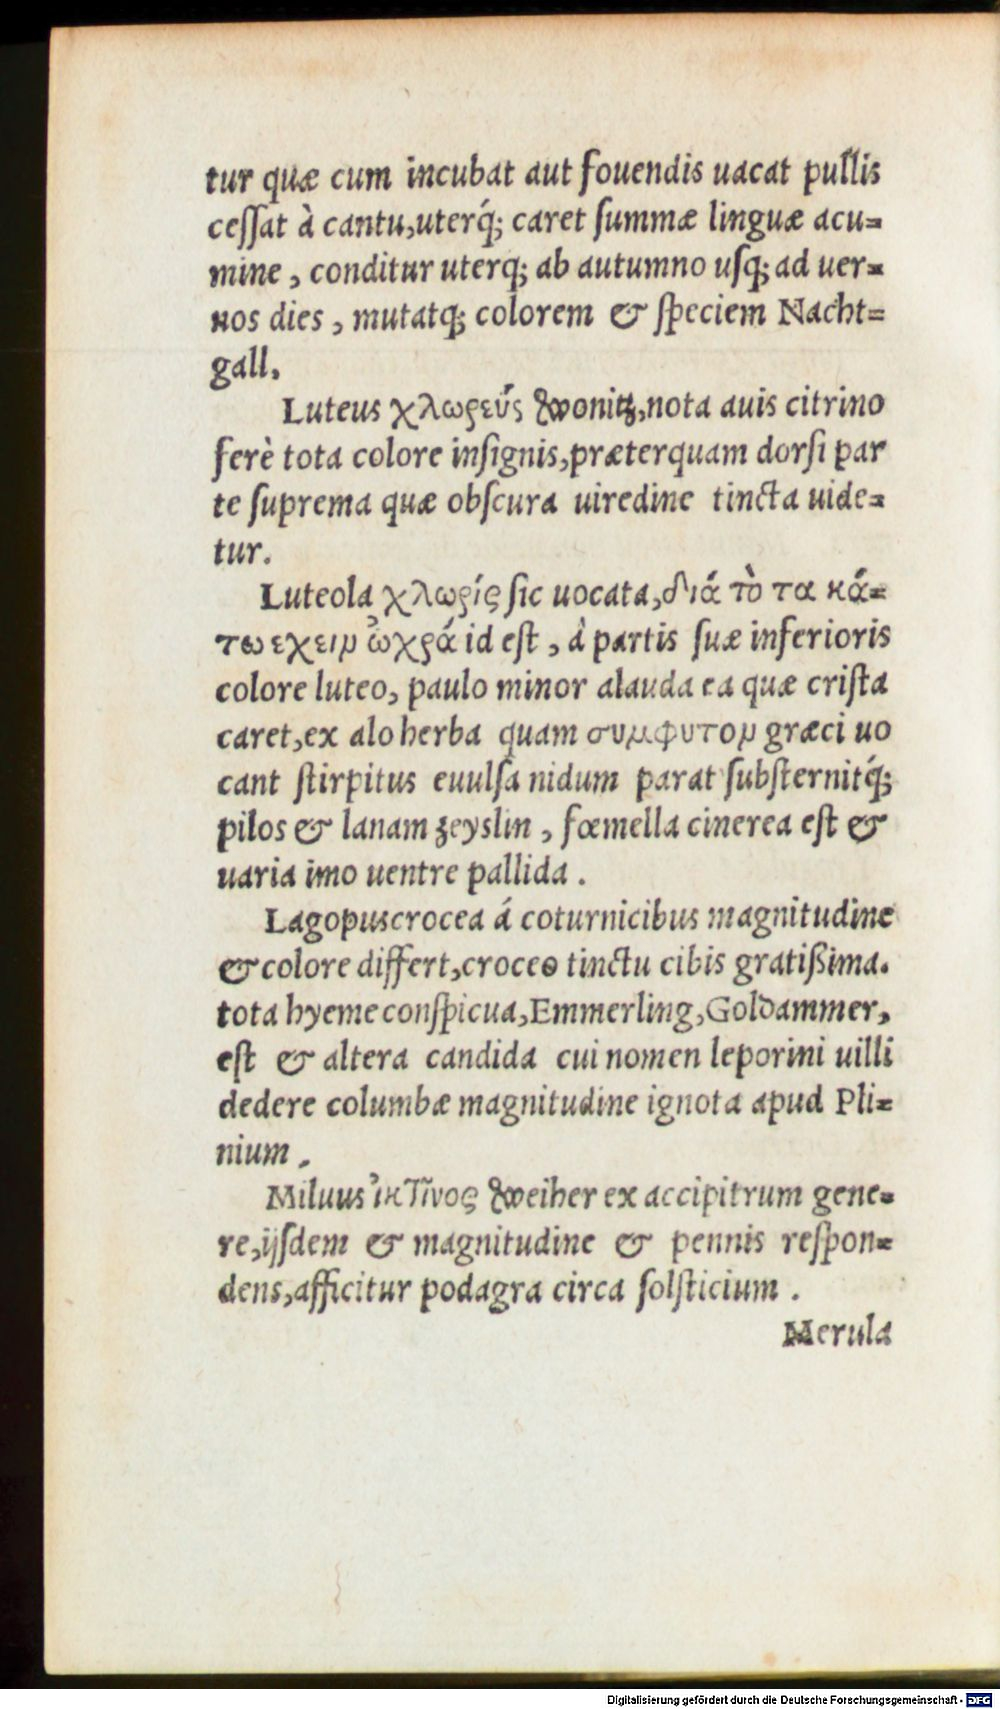 tur quæ cum incubat aut fouendis uacat pullis
ceſſat à cantu,uterq́; caret ſummæ linguæ acu=
mine , conditur uterq; ab autumno uſq; ad uer=
nos dies , mutatq; colorem & ſpeciem Nacht=
gall.
Luteus χλωρεύς Wonitz,nota auis citrino
ferè tota colore inſignis,præterquam dorſi par
te ſuprema quæ obſcura uiredine tincta uide=
tur.
Luteola χλωρίς ſic uocata,διά τὸ τα κά=
τω εχειν ὠχρά id eſt , à partis ſuæ inferioris
colore luteo, paulo minor alauda ea quæ criſta
caret,ex alo herba quam συμφυτον græci uo
cant ſtirpitus euulſa nidum parat ſubſternitq́;
pilos & lanam zeyslin , fœmella cinerea eſt &
uaria imo uentre pallida .
Lagopuscrocea á coturnicibus magnitudine
& colore differt,croceo tinctu cibis gratißima.
tota hyeme conſpicua,Emmerling,Goldammer,
eſt & altera candida cui nomen leporini uilli
dedere columbæ magnitudine ignota apud Pli=
nium .
Miluus ἰκτῖνος Weiher ex accipitrum gene=
re,ijſdem & magnitudine & pennis reſpon=
dens,afficitur podagra circa ſolſticium .
Merula
Digitalisierung gefördert durch die Deutsche Forschungsgemeinschaft - DFG